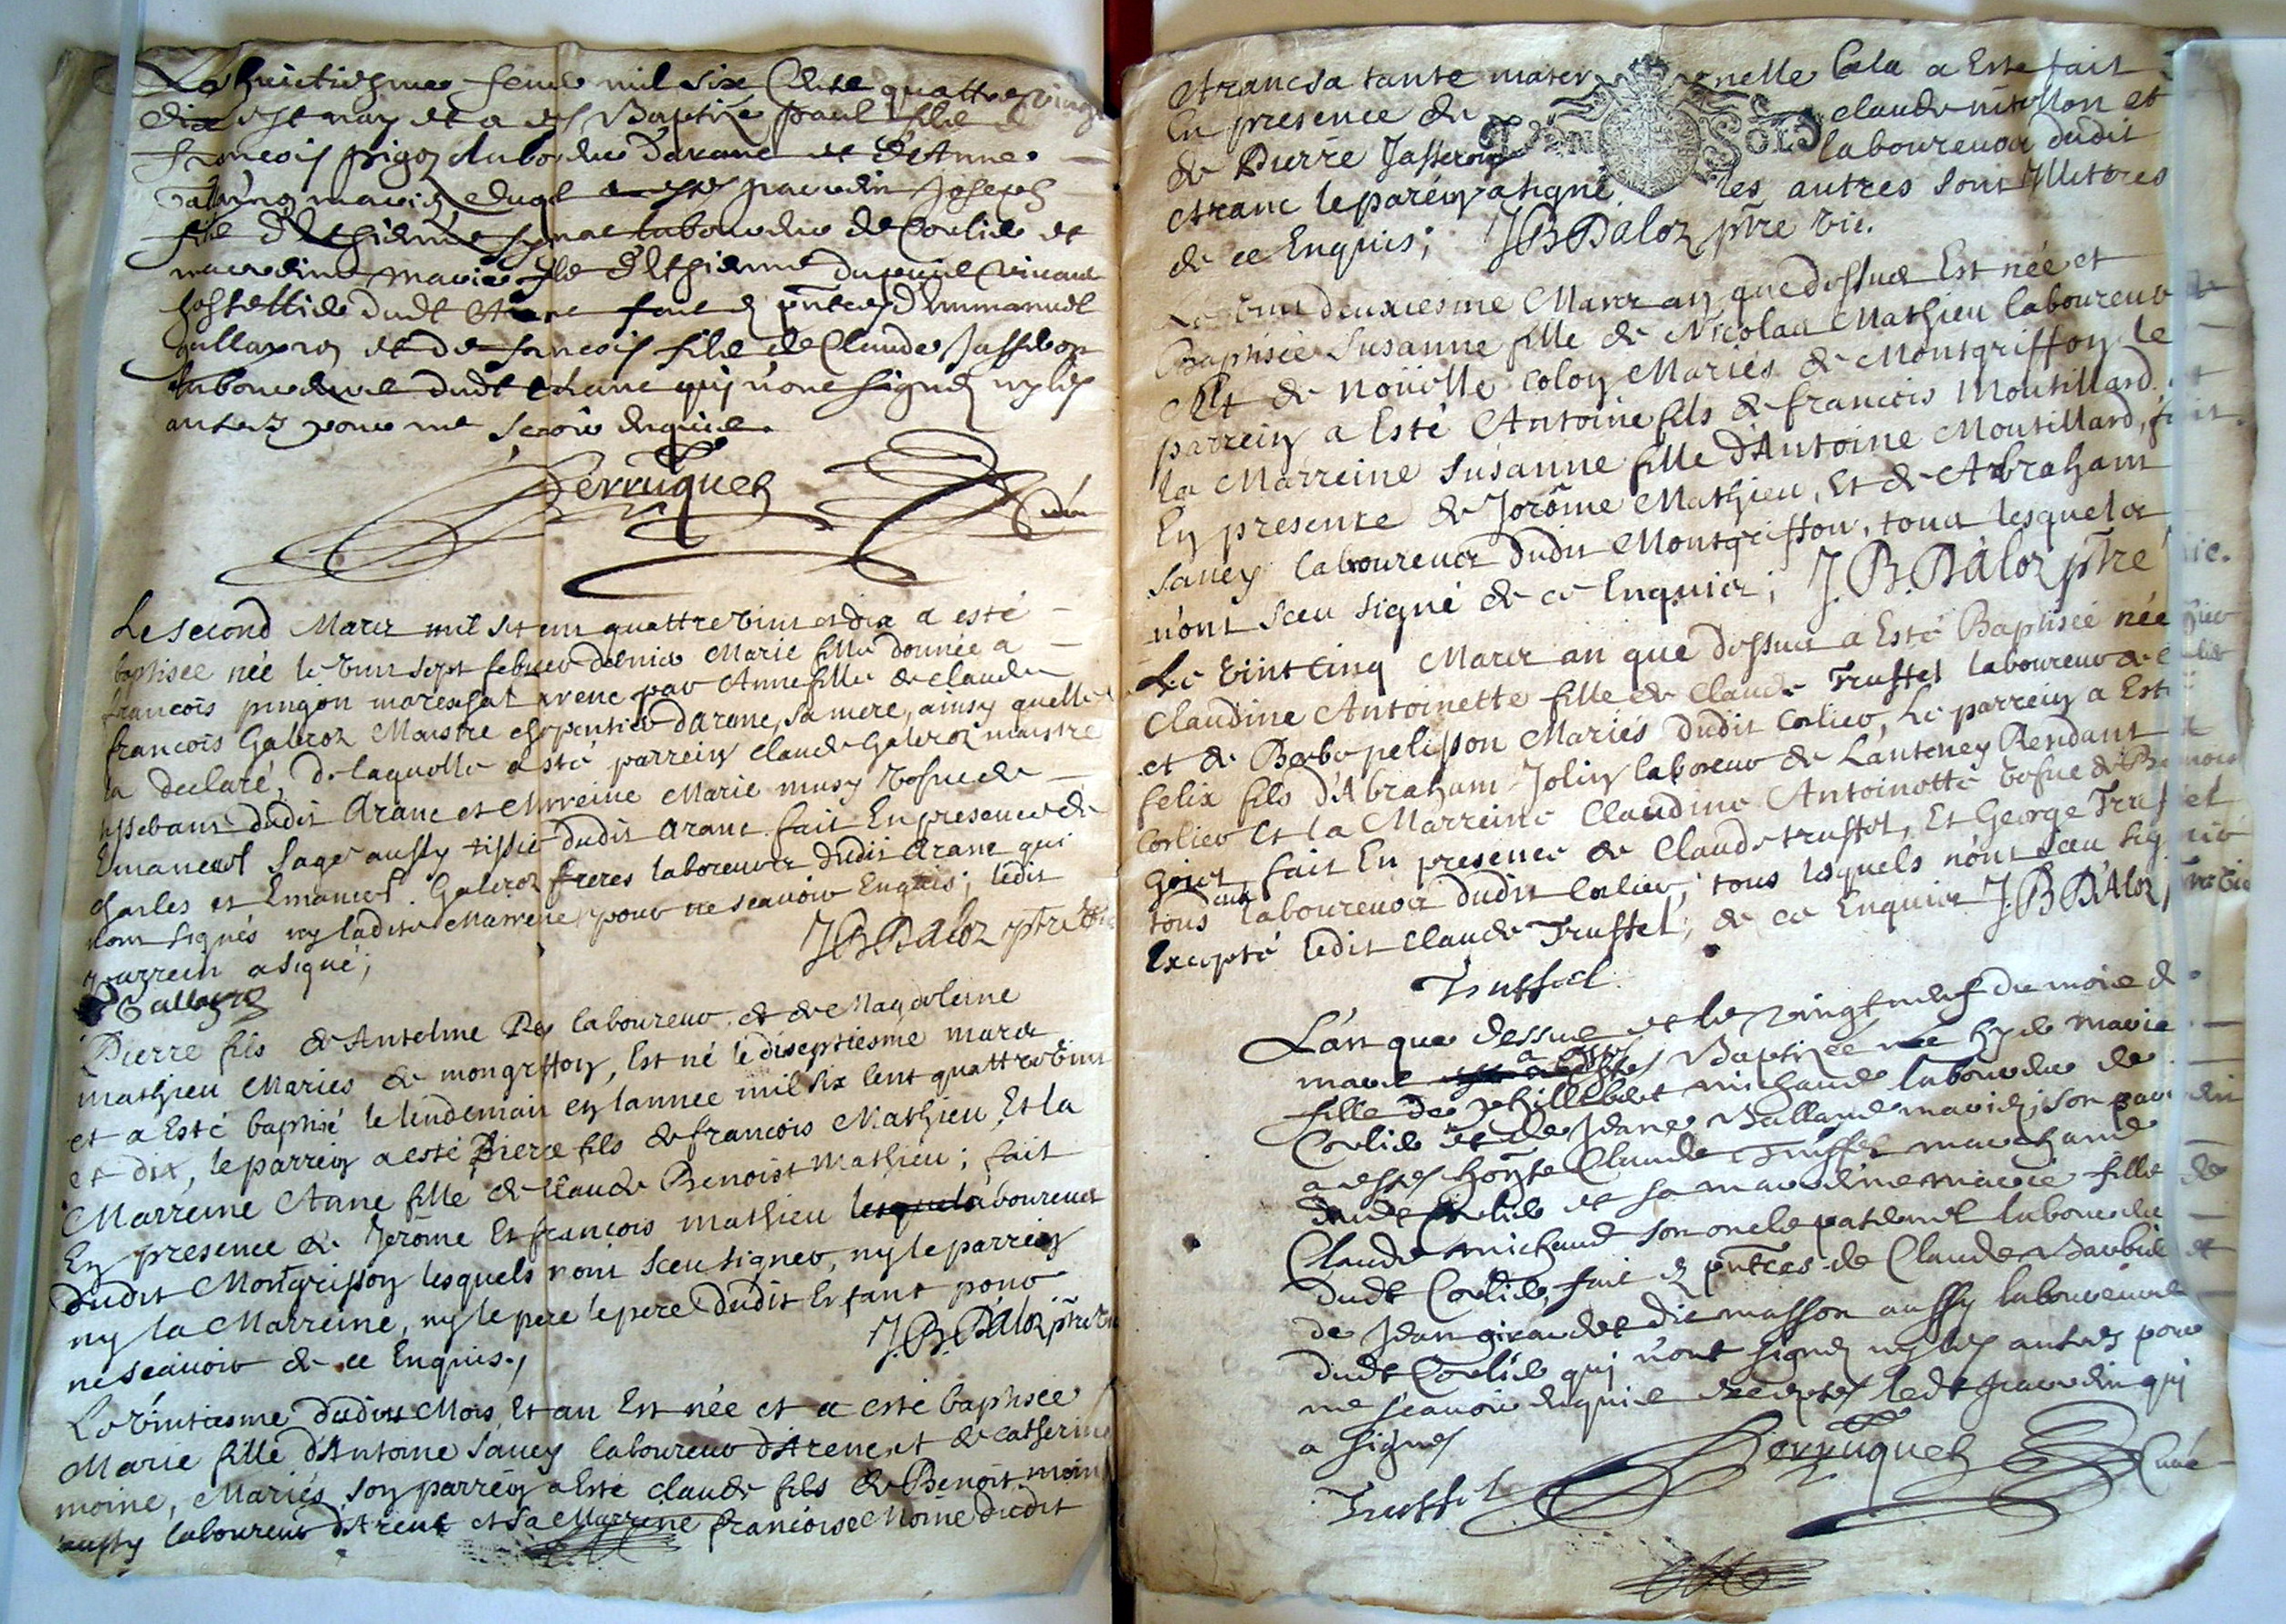 Le huictiesme feuvr mil six Cents quattre vingt
dix est nay et a esté Baptizé paul filz de
francois laboureur Daranc et d'Anne
mariez duquel a esté parrdin Joseph
filz d'Esthienne laboureur de Corlier et
marrdine marie fille d'Esthienne
dudt Aranc faict en pntces d'Emmanuel
Gallayroz et de francois filz de Claude Jasseron
laboureurs dudt Aranc qui n'ont signez ny les
autres pour ne scavoir enquis.
Perruquet Curé
Le second Marcz mil six cens quattrevint et dix a esté
baptisée née le vint sept febvrier dernier Marie fille donnée a
francois pingon mareschal par Anne fille de claude
francois Galeroz Maistre charpentier d'Aranc, sa mere, ainsy quelle
la declaré, de laquelle a esté parrein claude Galeroz maistre
dudit Aranc et Marreine Marie musy vefue de
Emanuel Sage aussy tissier dudit Aranc fait En presence de
charles et Emanuel Galeroz freres laboureurs dudit Aranc qui
nont signés ny ladite Marreine pour ne scavoir Enquis; ledit
parrein a signé;
JB Daloz ptre vic
Gallayroz
Pierre fils de Antelme laboureur et de Magdeleine
mathieu Mariés de mongriffon, Est né le diseptiesme marcz
et a Esté baptisé le lendemain en lannee mil six cent quattrevint
et dix, le parrein a esté Pierre fils de francois Mathieu, Et la
Marreine Anne fille de Claude Benoist Mathieu; fait
En presence de Jerôme Et francois mathieu lesquels laboureurs
dudit Montgriffon lesquels n'ont sceu signer, ny le parrein
ny la Marreine, ny le pere le pere dudit Enfant pour
ne scauoir de ce Enquis.,
J.B. Daloz ptre vic
Le vintiesme dudit Mois Et an Est née et a esté baptisée
Marie fille d'Antoine Saney laboureur d'Arenc et de catherine
moine, Mariés son parrein a Esté claude fils de Benoit moine
aussy laboureur d'Arenc et sa Marreine francoise Moine dudit
Aranc sa tante maternelle Cela a Esté fait
En presence de claude et
de Pierre Jasseron laboureurs dudit
Aranc le parein a signé, les autres sont Illitérés
de ce Enquis; JB Daloz ptre vic.
Le vint deuxiesme Marcz an que dessus Est née et
Baptisée Susanne fille de Nicolas Mathieu laboureur
Et de Noüelle coloy Mariés de Montgriffon le
parrein a Esté Antoine fils de francois Moutillard
la Marreine Susanne fille d'Antoine Moutillard, fait
En presence de Jerôme Mathieu, Et de Abraham
Saney laboureurs dudit Montgriffon, tous lesquels
n'ont sceu signé de ce Enquis; J.B. Daloz ptre vic.
Le vint cinq Marcz an que dessus a Esté Baptisée née
Claudine Antoinette fille de Claude Truffet laboureur de
et de pelisson Mariés dudit Corlier, Le parrein a Esté
felix fils d'Abraham Jolin laboreur de Lanteney Rendant
Corlier Et la Marreine Claudine Antoinette vefue de
Goier, fait En presence de Claude truffet, Et George Truffet
tous laboureurs dudit Corlier; tous lesquels n'ont sceu signé
Excepté ledit Claude Truffet; de ce Enquis J.B Daloz ptre vic
Truffet
L'an que dessus et le vingt neuf du mois de
mars a esté Baptizée née hyer marie
fille de phillibert michaud laboureur de
Corlier et de Jeane Balland mariez, son parrdin
a esté honste Claude Truffet marchand
dudt Corlier et sa marrdine marie fille de
Claude michaud son oncle paternel laboureur
dudt Corlier, fait en pntces de Claude et
de Jean dit masson aussy laboureurs
dudt Corlier qui n'ont signez ny les autres pour
ne scavoir enquis excepté ledt parrdin qui
a signé
Truffet Perruquet Curé